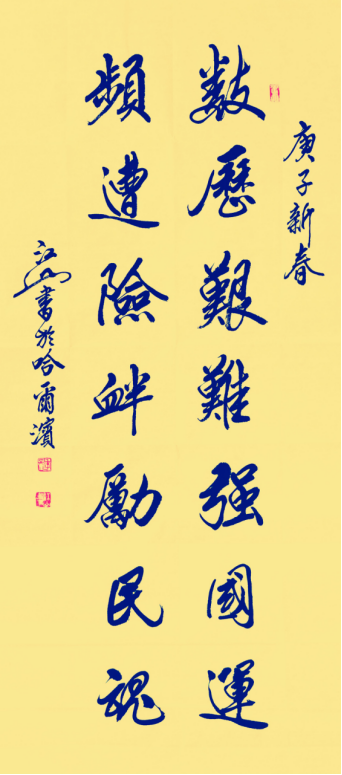 庚子新春
数歷艱難强國運
頻遭險衅勵民魂
江山書於哈爾濱